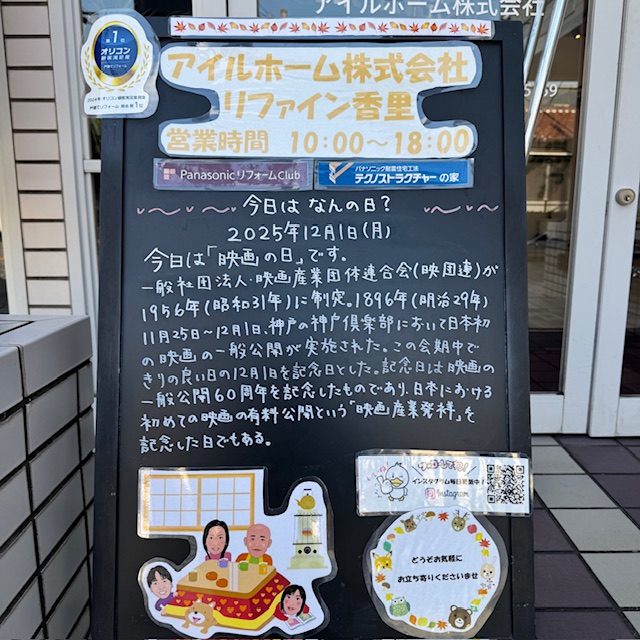 アイルホーム株式会社
第1位
オリコン
顧客満足度
戸建てリフォーム 総合第1位
アイルホーム株式会社
リファイン香里
営業時間 10:00〜18:00
Panasonic リフォームClub
パナソニック耐震住宅工法
テクノストラクチャーの家
今日は なんの日?
2025年12月1日(月)
今日は「映画の日」です。
一般社団法人・映画産業団体連合会(映団連)が
1956年(昭和31年)に制定。1896年(明治29年)
11月25日〜12月1日、神戸の神戸倶楽部において日本初
の映画の一般公開が実施された。この会期中で
きりの良い日の12月1日を記念日とした。記念日は映画の
一般公開60周年を記念したものであり、日本における
初めての映画の有料公開という「映画産業発祥」を
記念した日でもある。
インスタグラム毎日更新中!
Instagram
どうぞお気軽に
お立ち寄りくださいませ